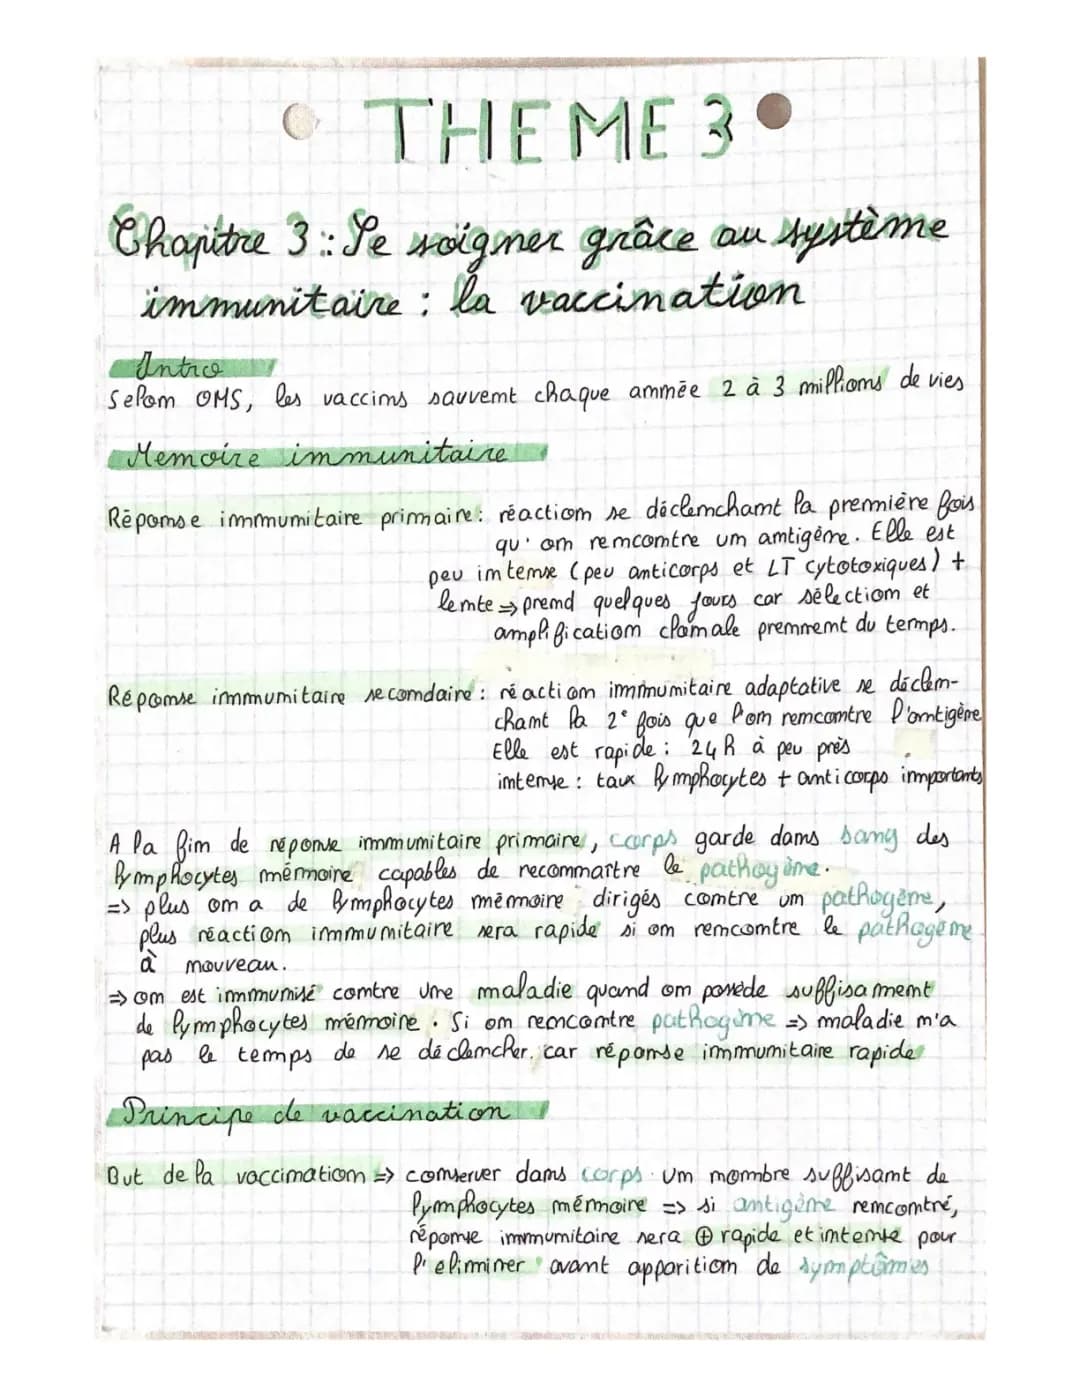 THEME 3
Chapitre 3 : Se soigner grâce au système
immunitaire : la vaccination
Intro
Selon OMS, les vaccins sauvent chaque année 2 à 3 millions de vies
Memoire immunitaire
Réponse immunitaire primaire : réaction se déclenchant la première fois
qu'on rencontre un antigène. Elle est
peu intense (peu anticorps et LT cytotoxiques) +
lente => prend quelques jours car sélection et
amplification clonale prennent du temps.
Réponse immunitaire secondaire : réaction immunitaire adaptative se déclen-
chant la 2e fois que l'on rencontre l'antigène
Elle est rapide : 24h à peu près
intense : taux lymphocytes + anticorps importants
A la fin de réponse immunitaire primaire, corps garde dans sang des
lymphocytes mémoire capables de reconnaître le pathogène.
=> plus on a de lymphocytes mémoire dirigés contre un pathogène,
plus réaction immunitaire sera rapide si on rencontre le pathogène
à nouveau.
=> on est immunisé contre une maladie quand on possède suffisament
de lymphocytes mémoire. Si on rencontre pathogène => maladie n'a
pas le temps de se déclencher, car réponse immunitaire rapide
Principe de vaccination
But de la vaccination => conserver dans corps un nombre suffisant de
lymphocytes mémoire => si antigène rencontré,
réponse immunitaire sera ⊕ rapide et intense pour
l'éliminer avant apparition de symptômes